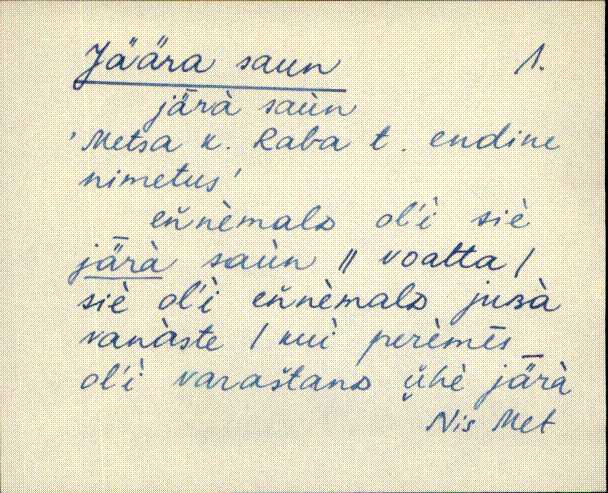 Jäära saun 1.
jǟrà saùn
'Metsa k. Raba t. endine
nimetus'
en̆nèmalᴅ ol'ì siè
jǟrà saùn ‖ voatta /
siè ol'ì en̆nèmalᴅ jusà
vanàste / kui perèmēs
ol'ì varaštanᴅ ü̆hè jǟrà
Nis Met